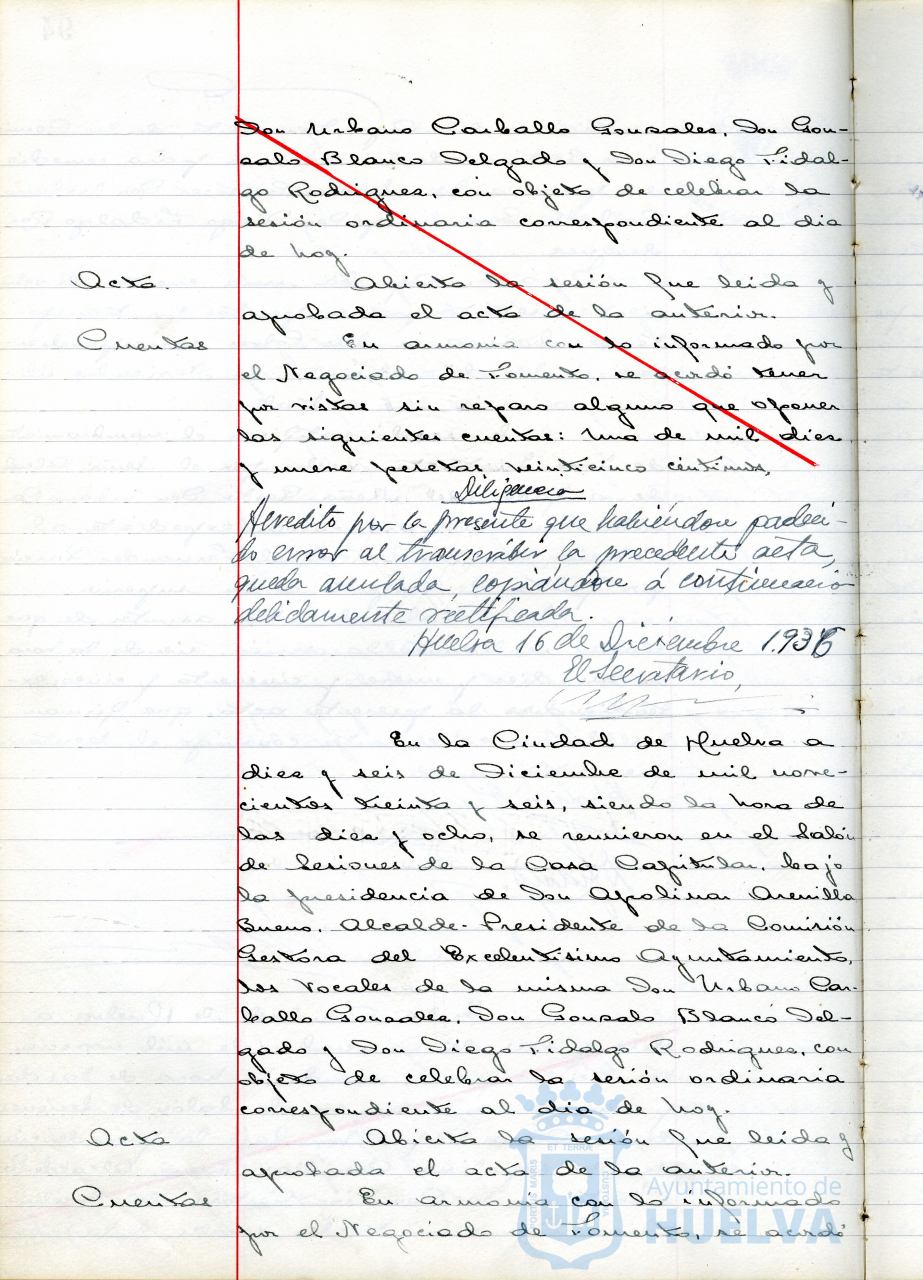 Don Urbano Carballo Gonzales, Don Gon-
zalo Blanco Delgado y Don Diego Fidal-
go Rodrigues, con objeto de celebrar la
sesión ordinaria correspondiente al dia
de hoy.
Acta. Abierta la sesión fue leida y
aprobada el acta de la anterior.
Cuentas En armonia con lo informado por
el Negociado de Fomento, se acordó tener
por vistas sin reparo alguno que oponer
las siguientes cuentas: Una de mil dies
y nueve pesetas, veinticinco centimos,
Diligencia
Acredito por la presente que habiéndose padeci-
do error al transcribir la precedente acta,
queda anulada, copiándose á continuació
debidamente rectificada.
Huelva 16 de Diciembre 1.936
El Secretario,
En la Ciudad de Huelva a
dies y seis de Diciembre de mil nove-
cientos treinta y seis, siendo la hora de
las dies y ocho, se reunieron en el Salón
de Sesiones de la Casa Capitular, bajo
la presidencia de Don Apolinar Arenilla
Bueno, Alcalde-Presidente de la Comisión
Gestora del Excelentisimo Ayuntamiento,
los Vocales de la misma Don Urbano Car-
ballo Gonzales, Don Gonzalo Blanco Del-
gado y Don Diego Fidalgo Rodrigues, con
objeto de celebrar la sesión ordinaria
correspondiente al dia de hoy.
Acta Abierta la sesión fue leida y
aprobada el acta de la anterior.
Cuentas En armonia con lo informado
por el Negociado de Fomento, se acordó
Ayuntamiento de
HUELVA
PORTUS MARIS
ET TERRÆ
CUSTODIA